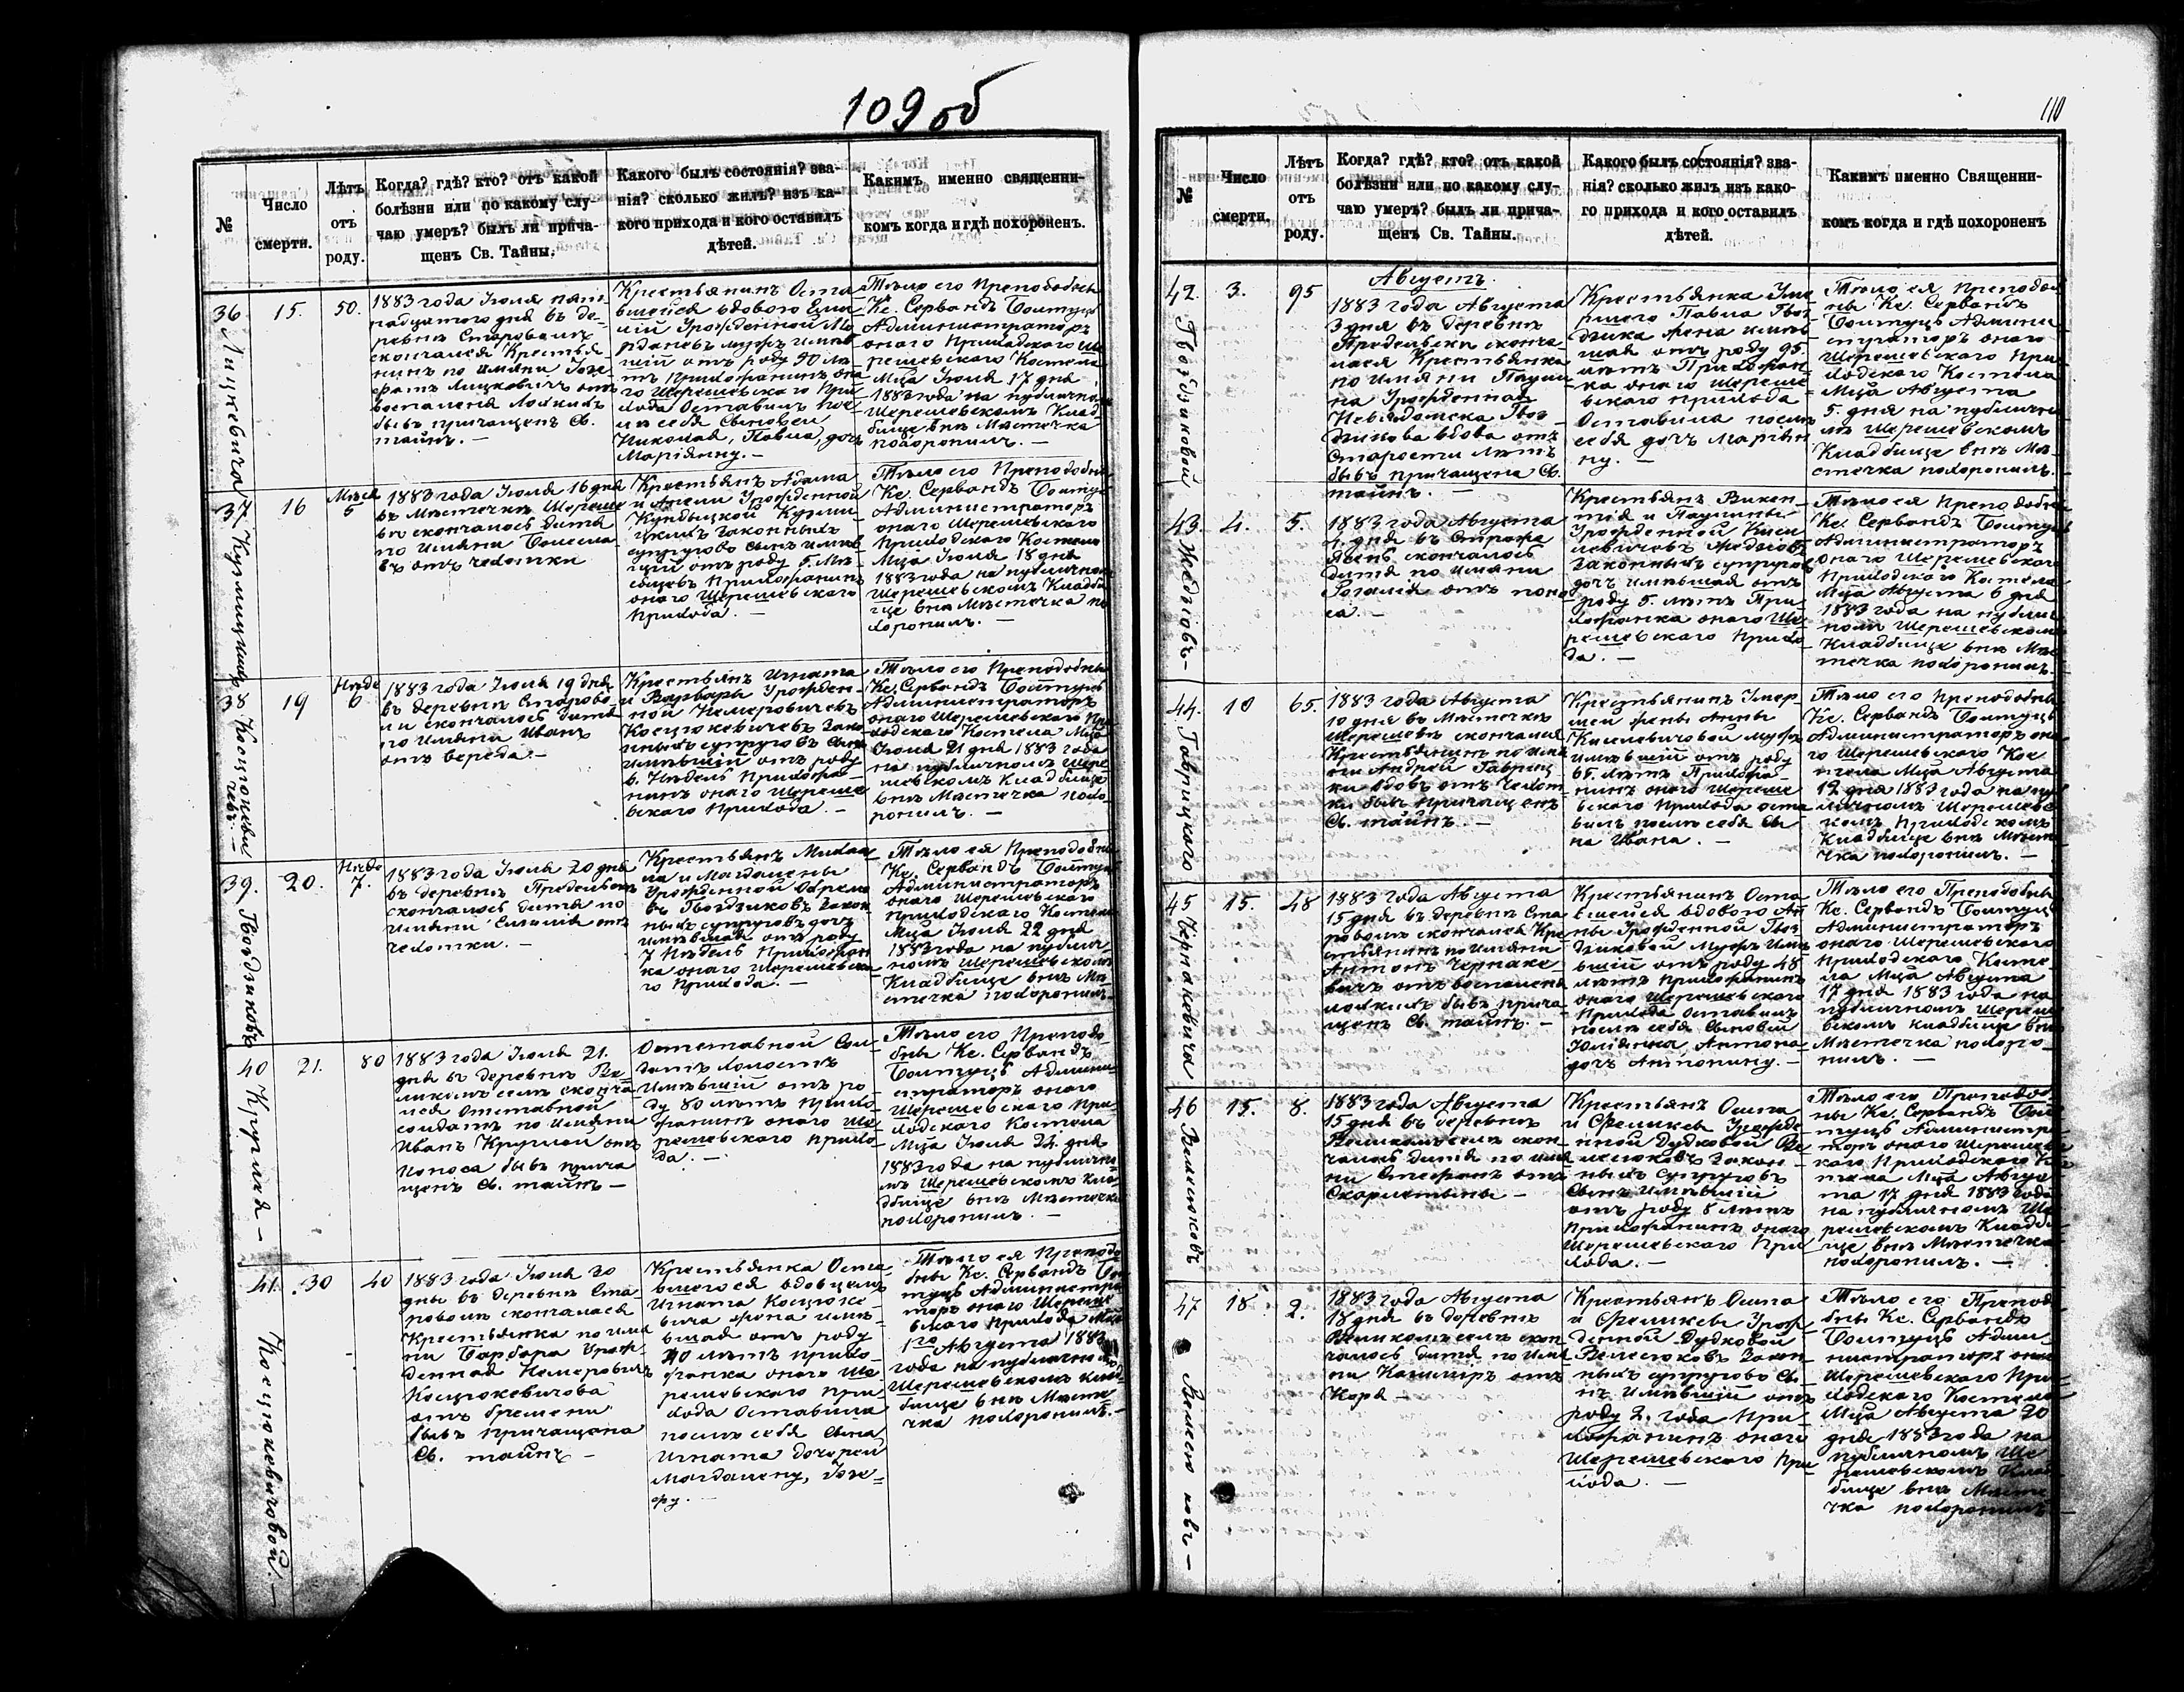 109 об
№
Число
смерти.
Лѣтъ
отъ
роду.
Когда? гдѣ? кто? отъ какой
болѣзни или по какому слу-
чаю умеръ? былъ ли прича-
щенъ Св. Тайны.
Какого былъ состоянія? зва-
нія? сколько жилъ? изъ ка-
кого прихода и кого оставилъ
дѣтей.
Какимъ именно священни-
комъ когда и гдѣ похороненъ.
36
15.
50.
1883 года Іюля пят-
надцатого дня въ де-
ревнѣ
скончался Крестья-
нинъ по имяни
отъ
воспаленія
бывъ причащенъ Св.
тайнъ. —
Крестьянинъ Оста
вшейся вдового
Урожденной
мужъ имѣв
шій отъ роду 50 лѣ
тъ Прихожанинъ она
го Шерешевскаго При
хода Оставилъ пос
лѣ себя Сыновей
Николая, Павла, дочь
Маріянну. —
Тѣло его Преподобны
Кс. Сервандъ
Администраторъ
онаго Приходского Ше
решевского Костела
Мца Іюля 17 дня
1883 года на публично
Шерешевскомъ Клад
бище внѣ Мѣстечка
похоронилъ. —
37
16
Мѣся
5
1883 года Іюля 16 дня
въ Мѣстечкѣ Шереше
вѣ скончалось дитя
по имяни Болесла
въ отъ чехотки
Крестьянъ Адама
Урожденной
законныхъ
супруговъ Сынъ имѣв
шій отъ роду 5 Мѣ
сяцевъ Прихожанинъ
онаго Шерешевскаго
Прихода. —
Тѣло его Преподобны
Кс. Сервандъ
Администраторъ
онаго Шерешевского
Приходского Костела
Мца Іюля 18 дня
1883 года на публичном
Шерешевскомъ Кладби
ще внѣ Мѣстечка по
хоронилъ. —
38
19
Недѣ
6
1883 года Іюля 19 дня
въ деревнѣ Старово
ли скончалось дитя
по имяни Иванъ
отъ вереда. —
Крестьянъ Игната
и Варвары Урожден-
ной Немеровичевъ
Косцюкевичевъ Зако
нныхъ супруговъ Сынъ
имѣвшій отъ роду
6. Недѣль Прихожа-
нинъ онаго Шереше
вскаго Прихода. —
Тѣло его Преподобны
Кс. Сервандъ
Администраторъ
онаго Шерешевского При
ходского Костела Мца
Іюля 21 дня 1883 года
на публичномъ Шере
шевскомъ Кладбище
внѣ Мѣстечка похо-
ронилъ. —
39.
20.
Недѣ
7.
1883 года Іюля 20 дня
въ деревнѣ
скончалось дитя по
имяни отъ
чехотки. —
Крестьянъ Михаи
ла и Магдалены
Урожденной
Гвоздзиковъ закон
ныхъ супруговъ дочь
имѣвшая отъ роду
7 Недѣль Прихожан
ка онаго Шерешевска
го Прихода. —
Тѣло ея Преподобны
Кс. Сервандъ
Администраторъ
онаго Шерешевского
Приходского Костела
Мца Іюля 22 дня
1883 года на публич
номъ Шерешевскомъ
Кладбище внѣ Мѣ
стечка похоронилъ. —
40
21.
80
1883 года Іюля 21.
дня въ деревнѣ Ве
ликомъ селѣ сконча
лся Отставной
солдатъ по имяни
Иванъ Круглей отъ
поноса бывъ прича
щенъ Св. тайнъ —
Отставной Сол-
датъ холостъ
имѣвшій отъ ро
ду 80 лѣтъ Прихо
жанинъ онаго Ше
решевского Прихо-
да. —
Тѣло его Преподо
бны Кс. Сервандъ
Админи
страторъ онаго
Шерешевского При
ходского Костела
Мца Іюля 24. дня
1883 года на публично
мъ Шерешевскомъ Кла
дбище внѣ Мѣстечка
похоронилъ. —
41.
30
40
1883 года Іюля 30
дня въ деревнѣ Ста
роволи скончалася
Крестьянка по имя
ни Барбара Урож-
денная Немеровичъ
Косцюкевичова
отъ бремени
бывъ причащена
Св. тайнъ —
Крестьянка Оста
вшегося вдовцемъ
Игната Косцюке
вича жена имѣ
вшая отъ роду
40 лѣтъ Прихо-
жанка онаго Ше
решевскаго При
хода Оставила
послѣ себя Сына
Игната дочерей
Магдалену, Юзе-
фу. —
Тѣло ея Преподо
бны Кс. Сервандъ
Администра
торъ онаго Шереше
вскаго Прихода
1го Августа 1883
года на публичном
Шерешевскомъ Клад
бище внѣ Мѣсте
чка похоронилъ. —
Косцюкевичовой. —
110
№
Число
смерти.
Лѣтъ
отъ
роду.
Когда? гдѣ? кто? отъ какой
болѣзни или по какому слу-
чаю умеръ? былъ ли прича-
щенъ Св. Тайны.
Какого былъ состоянія? зва-
нія? сколько жилъ изъ како-
го прихода и кого оставилъ
дѣтей.
Какимъ именно Священни-
комъ когда и гдѣ похороненъ
42.
Гвоздзиковой
3.
95
Августъ.
1883 года Августа
3 дня въ деревнѣ
сконча
лася Крестьянка
по имяни Паули
на Урожденная
Гвоз
дзикова вдова отъ
Старости лѣтъ
бывъ причащена Св.
тайнъ. —
Крестьянка Уме
ршего Павла Гвоз
дзика жена имѣв
шая отъ роду 95.
лѣтъ Прихожан-
ка онаго Шереше
вского прихода
Оставила послѣ
себя дочь Маріян
ну. —
Тѣло ея Преподоб
ны Кс. Сервандъ
Админи
страторъ онаго
Шерешевского При
ходского Костела
Мца Августа
5. дня на публично
мъ Шерешевскомъ
Кладбище внѣ Мѣ
стечка похоронилъ. —
43.
4.
5.
1883 года Августа
4. дня въ
скончалось
дитя по имяни
Розалія отъ поно
са. —
Крестьянъ Викен-
тія и Паулины
Урожденной Кисе
левичевъ
законныхъ супругов
дочь имѣвшая отъ
роду 5. лѣтъ При-
хожанка онаго Ше
решевскаго Прихо
да. —
Тѣло ея Преподобны
Кс. Сервандъ
Администраторъ
онаго Шерешевского
Приходского Костела
Мца Августа 6 дня
1883 года на публич
номъ Шерешевскомъ
Кладбище внѣ Мѣс
течка похоронилъ. —
44.
Гаврицкого
10
65.
1883 года Августа
10 дня въ Мѣстечкѣ
Шерешевѣ скончался
Крестьянинъ по имя
ни Андрей Гавриц
ки вдовъ отъ Чехот
ки былъ причащенъ
Св. тайнъ. —
Крестьянинъ Умер-
шей жены Анны
Киселевичовой мужъ
имѣвшій отъ роду
65. лѣтъ Прихожа-
нинъ онаго Шереше
вскаго Прихода оста
вилъ послѣ себя Сы
на Ивана. —
Тѣло его Преподобны
Кс. Сервандъ
Администраторъ она
го Шерешевского Кос
тела Мца Августа
12 дня 1883 года на пу
бличномъ Шерешевс
комъ Приходскомъ
Кладбище внѣ Мѣсте
чка похоронилъ. —
45
Чернакевича
15.
48
1883 года Августа
15 дня въ деревнѣ Ста
роволѣ скончался Кре
стьянинъ по имяни
Антонъ Чернаке-
вичъ отъ воспаленія
бывъ прича
щенъ Св. тайнъ. —
Крестьянинъ Оста
вшейся вдового Ан
ны Урожденной Гвоз
дзиковой Мужъ имѣ
вшій отъ роду 48
лѣтъ Прихожанинъ
онаго Шерешевского
Прихода оставилъ
послѣ себя Сыновей
Антона-
дочь Антонину. —
Тѣло его Преподобны
Кс. Сервандъ
Администраторъ
онаго Шерешевского
Приходского Косте-
ла Мца Августа
17 дня 1883 года на
публичномъ Шереше
вскомъ Кладбище внѣ
Мѣстечка похоро-
нилъ. —
46
Велесюковъ
15.
8.
1883 года Августа
15 дня въ деревнѣ
Великомъ селѣ скон-
чалось дитя по имя
ни Стефанъ отъ
Скарлятыны —
Крестьянъ Осипа
Урожде
нной Дудковой Ве
лесюковъ Закон-
ныхъ Супруговъ
Сынъ имѣвшій
отъ роду 8 лѣтъ
Прихожанинъ онаго
Шерешевского При
хода. —
Тѣло его Преподоб
ны Кс. Сервандъ
Администра
торъ онаго Шерешевс
кого Приходского Кос
тела Мца Авгус
та 17 дня 1883 года
на публичномъ Ше
решевскомъ Кладби
ще внѣ Мѣстечка
похоронилъ. —
47
Велесюковъ —
18
2.
1883 года Августа
18 дня въ деревнѣ
Великомъ селѣ скон
чалось дитя по имя
ни Казимиръ отъ
Коря —
Крестьянъ Осипа
Урож
денной Дудковой
Велесюковъ Закон
ныхъ супруговъ Сы
нъ имѣвшій отъ
роду 2. года При-
хожанинъ онаго
Шерешевского При
хода. —
Тѣло его Преподо
бны Кс. Сервандъ
Адми-
нистраторъ онаго
Шерешевского При
ходского Костела
Мца Августа 20
дня 1883 года на
публичномъ Ше
решевскомъ Клад
бище внѣ Мѣсте
чка похоронилъ —